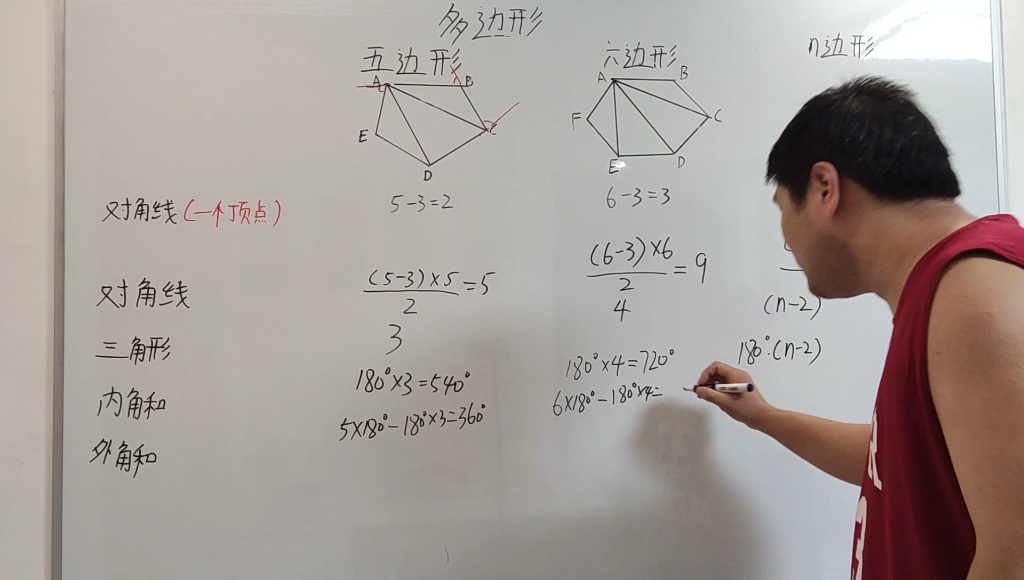 多边形
五边形
六边形
n边形
A B
C
D
E
A B
C
D
E
F
对角线(一个顶点)
5-3=2
6-3=3
对角线
(5-3)×5/2=5
(6-3)×6/2=9
三角形
3
4
(n-2)
内角和
180°×3=540°
180°×4=720°
180°·(n-2)
外角和
5×180°-180°×3=360°
6×180°-180°×4=